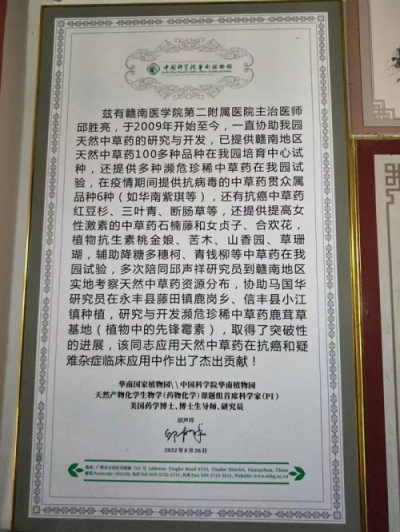 中国科学院华南植物园
兹有赣南医学院第二附属医院主治医师
邱胜亮，于2009年开始至今，一直协助我园
天然中草药的研究与开发，已提供赣南地区
天然中草药100多种品种在我园培育中心试
种，还提供多种濒危珍稀中草药在我园试
验，在疫情期间提供抗病毒的中草药贯众属
品种6种（如华南紫琪等），还有抗癌中草药
红豆杉、三叶青、断肠草等，还提供提高女
性激素的中草药石楠藤和女贞子、合欢花，
植物抗生素桃金娘、苦木、山香园、草珊
瑚，辅助降糖多穗柯、青钱柳等中草药在我
园试验，多次陪同邱声祥研究员到赣南地区
实地考察天然中草药资源分布，协助马国华
研究员在永丰县藤田镇鹿岗乡、信丰县小江
镇种植，研究与开发濒危珍稀中草药鹿茸草
基地（植物中的先锋霉素），取得了突破性
的进展，该同志应用天然中草药在抗癌和疑
难杂症临床应用中作出了杰出贡献！
华南国家植物园\\中国科学院华南植物园
天然产物化学生物学(药物化学)课题组首席科学家(PI)
美国药学博士、博士生导师、研究员
邱声祥
2022年8月26日